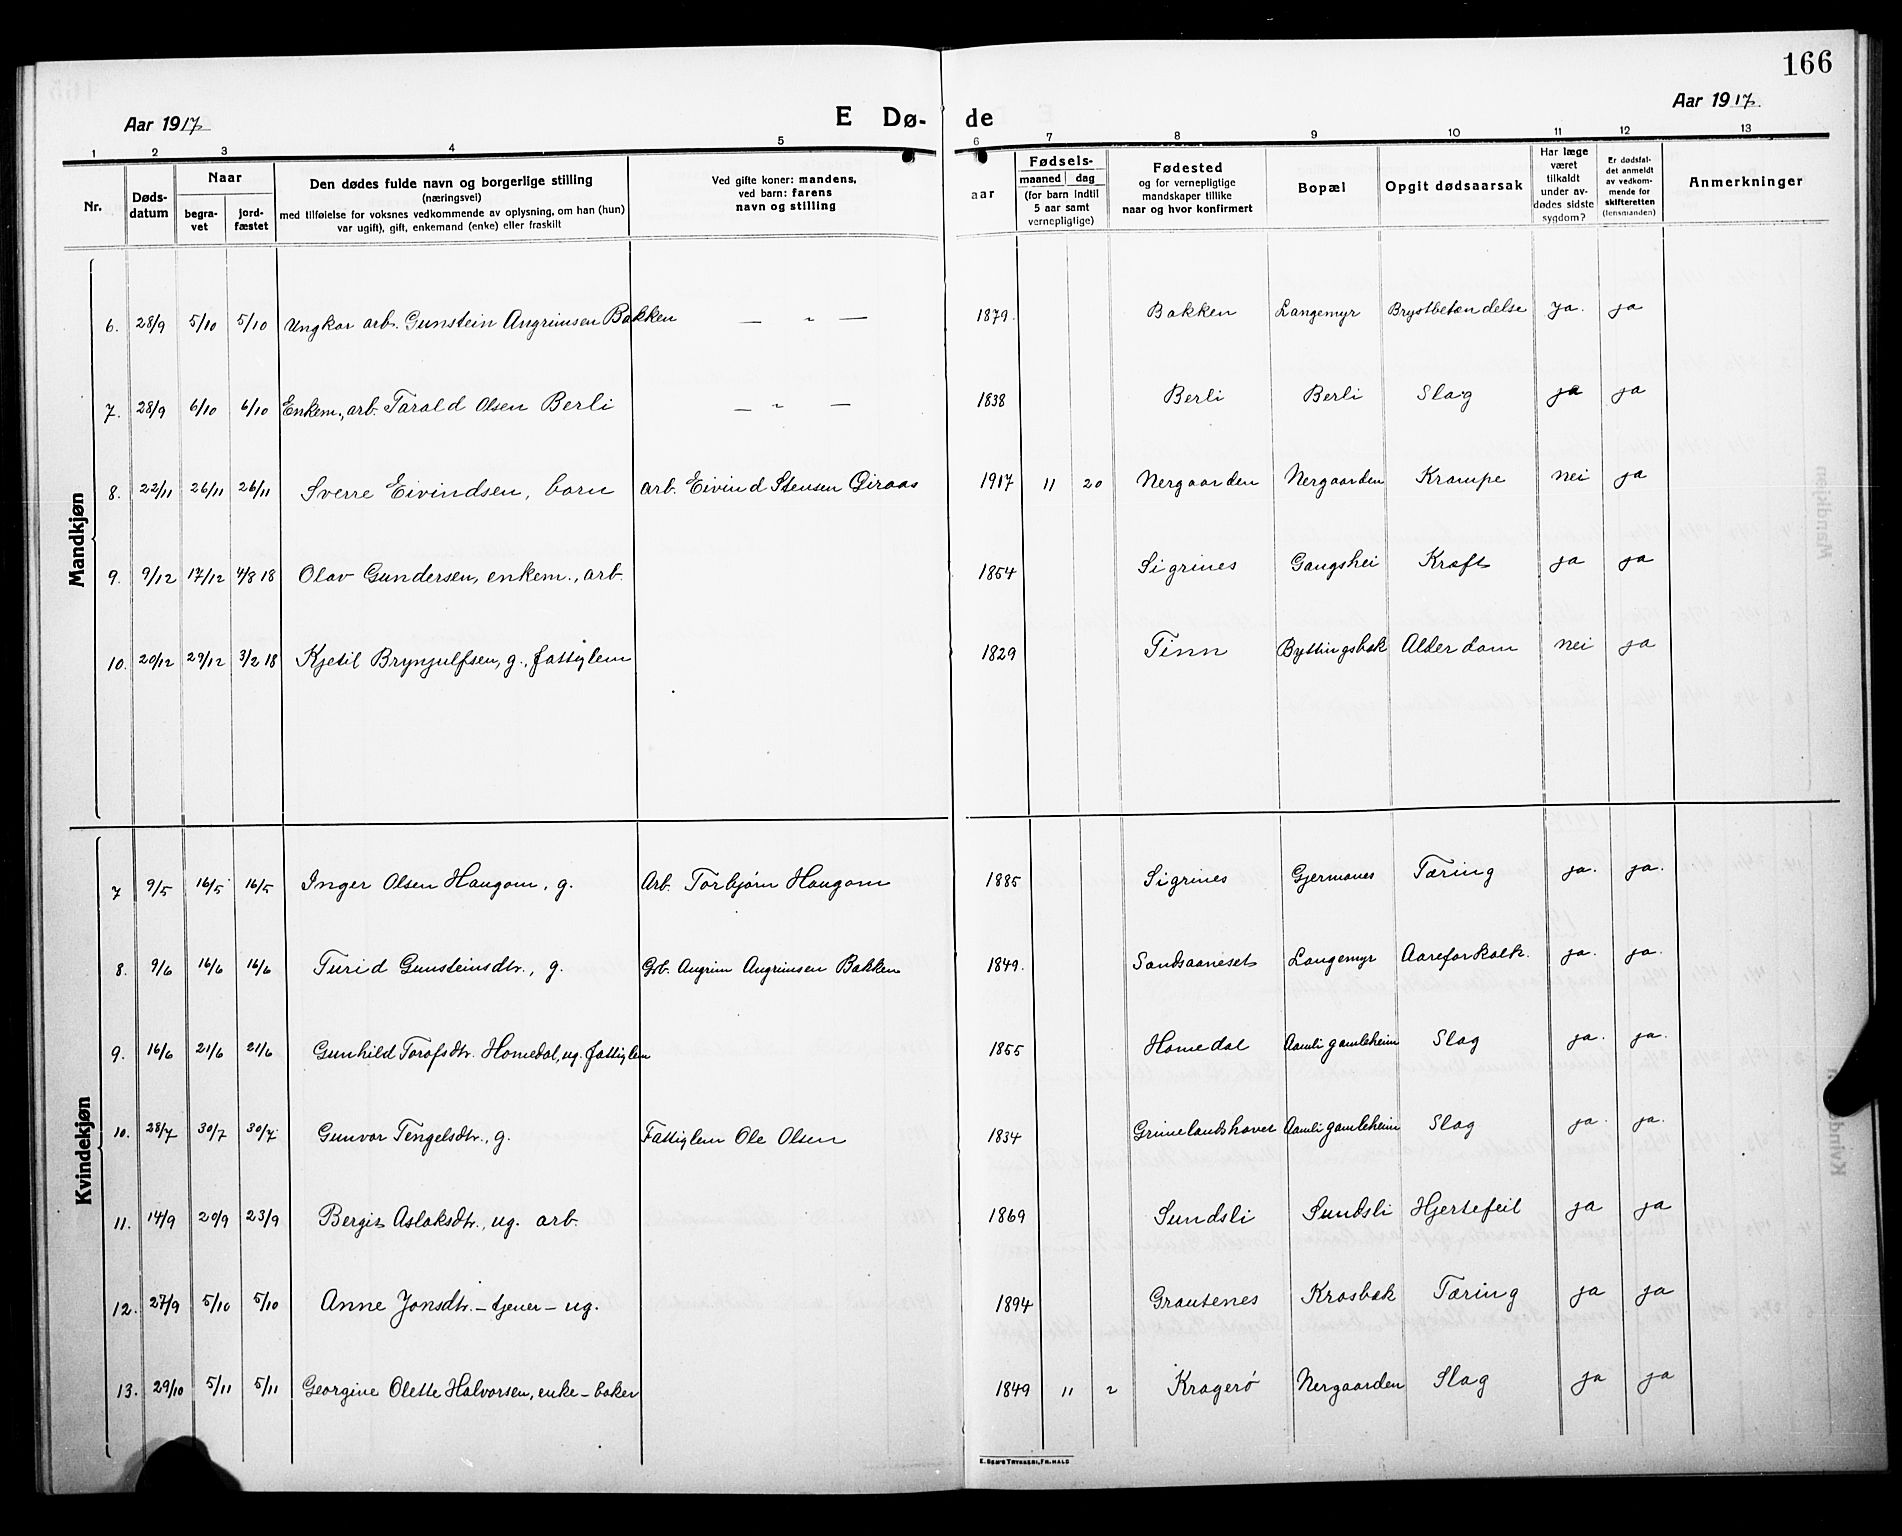 166
Aar 1917
E Dø-
de
Aar 1917.
1 2 3 4 5 6 7 8 9 10 11 12 13
Nr.
Døds-
datum
Naar
begra-
vet
jord-
fæstet
Den dødes fulde navn og borgerlige stilling
(næringsvei)
med tilføielse for voksnes vedkommende av oplysning, om han (hun)
var ugift), gift, enkemand (enke) eller fraskilt
Ved gifte koner: mandens,
ved barn: farens
navn og stilling
aar
Fødsels-
maaned dag
(for barn indtil
5 aar samt
vernepligtige)
Fødested
og for vernepligtige
mandskaper tillike
naar og hvor konfirmert
Bopæl
Opgit dødsaarsak
Har læge
været
tilkaldt
under av-
dødes sidste
sygdom?
Er dødsfal-
det anmeldt
av vedkom-
mende for
skifteretten
(lensmanden)
Anmerkninger
Mandkjøn
6. 28/9 5/10 5/10 Ungkar arb. Gunstein Angrimsen Bakken — " — 1879. Bakken Langemyr Brystbetændelse Ja. ja
7. 28/9 6/10 6/10 Enkem., arb. Tarald Olsen Berli — " — 1838 Berli Berli Slag ja ja
8. 22/11 26/11 26/11 Sverre Eivindsen, barn arb. Eivind Stensen Qiraas 1917 11 20 Nergaarden Nergaarden Krampe nei ja
9. 9/12 17/12 4/3 18 Olav Gundersen, enkem., arb. 1854 Sigrines Gangshei Kræft ja ja
10. 20/12 29/12 3/2 18 Kjetil Brynjulfsen, g., fattiglem 1829 Tinn Byttingsbæk Alderdom nei ja
Kvindekjøn
7 9/5 16/5 16/5 Inger Olsen Haugom, g. Arb. Torbjørn Haugom 1885 Sigrines Gjermones Tæring ja. ja.
8. 9/6 16/6 16/6 Turid Gunsteinsdtr., g. Grb. Angrim Angrimsen Bakken 1849. Sandsaaneset Langemyr Aareforkalk. ja. ja.
9. 16/6 21/6 21/6 Gunhild Torofsdtr. Homedal, ug. fattiglem 1855 Homedal Aamli gamleheim Slag ja. ja.
10. 28/7 30/7 30/7. Gunvor Tengelsdtr., g. Fattiglem Ole Olsen 1834 Grimelandshaver Aamli gamleheim Slag ja. ja.
11. 14/9 20/9 23/9 Bergit Aslaksdtr., ug. arb. 1869 Sundsli Sundsli Hjertefeil ja ja
12. 27/9 5/10 5/10 Anne Jonsdtr. – tjener – ug. 1894 Grautenes Krosbæk Tæring ja ja
13. 29/10 5/11 5/11 Georgine Olette Halvorsen, enke – baker 1849 11 2 Kragerø Nergaarden Slag ja ja
E. SEM'S TRYKKERI, FR.HALD